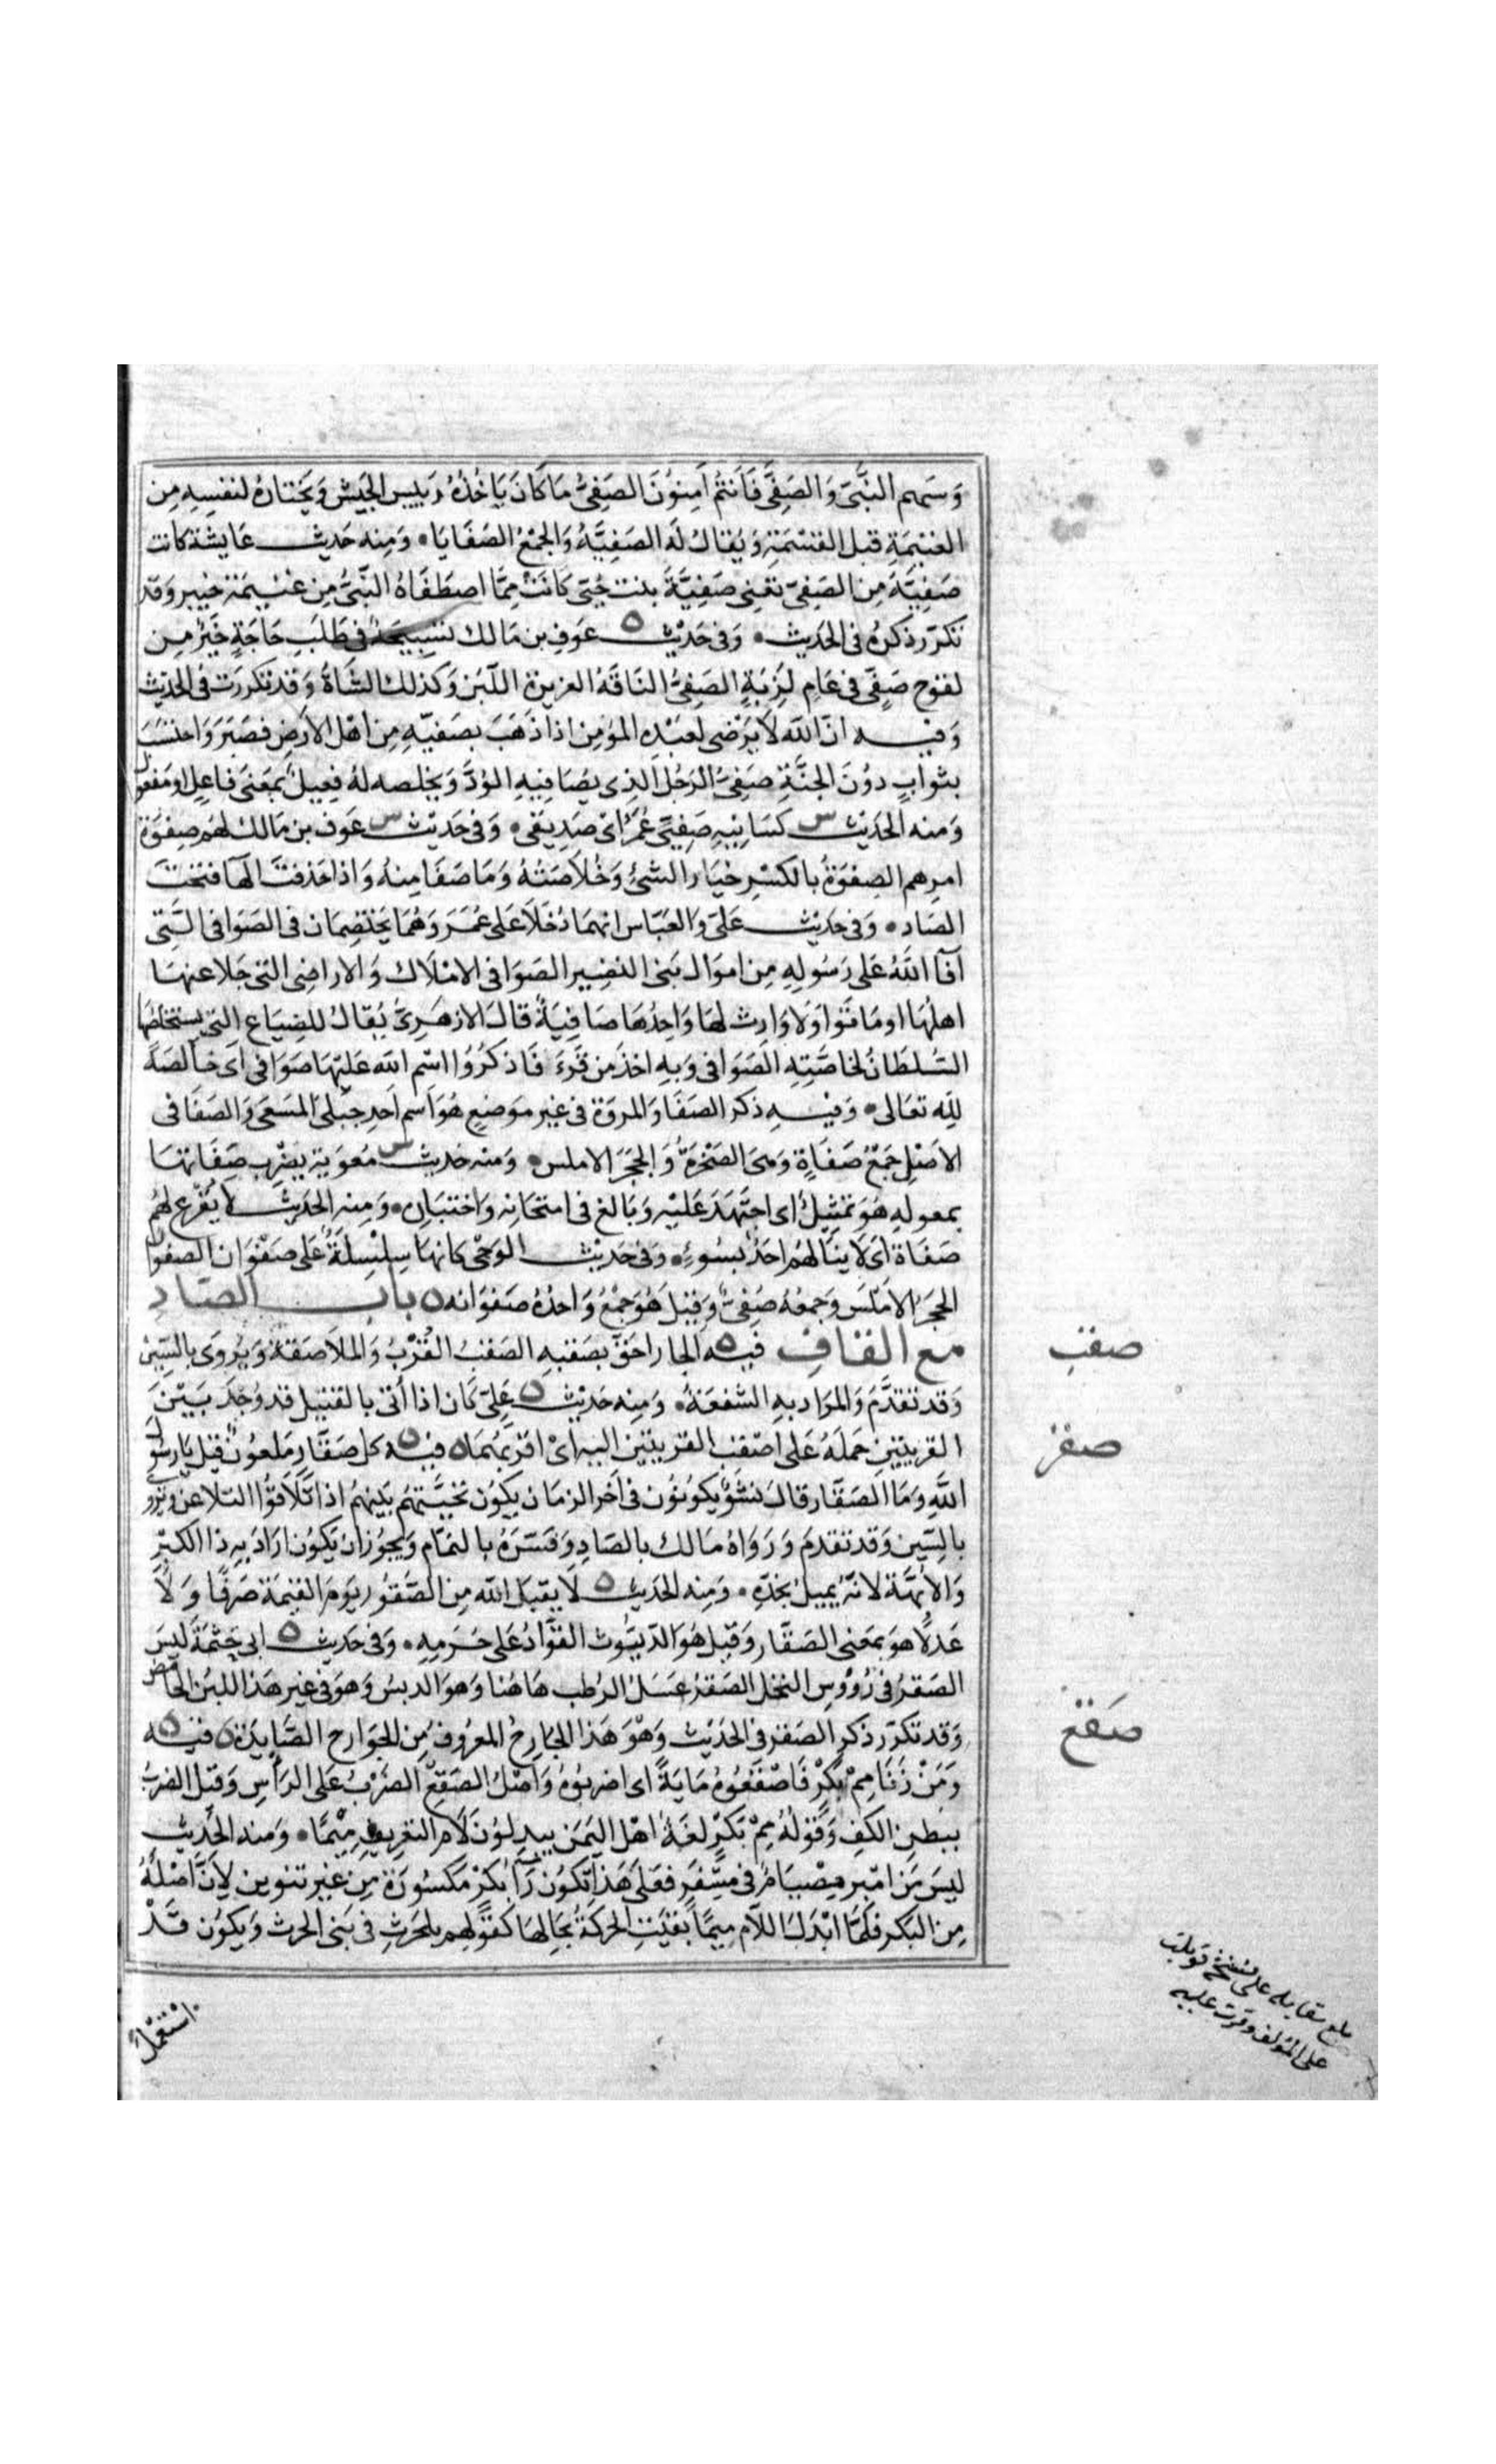 وَسَهم النَّبىّ وَالصَفِىَّ فَاَنتُم اٰمِنُوْنَ الصَفِىُّ مَا كَانَ يَاخُذُهُ رَييس الجَيش وَيَختارُهُ لنفسِهِ مِن
الغنيمَةِ قبل القسْمَةِ وَيُقالُ لَهُ الصَفِيَّةُ وَالجَمْعُ الصَفَايَا، وَمِنه حَديث عَايشة كانت
صَفِيّةُ مِن الصَفِىّ تعْنِى صَفِيَّةَ بنت حُيَىّ كَانَتْ مِمَّا اصطَفَاهُ النَّبىُّ مِن غنيمَة خيبر وَقد
تكرّر ذكرُه فى الحَديث، وَفى حَدِيْث عَوف بن مَالك تسْبيحَةٌ فى طَلَبِ حَاجَةٍ خَيْرٌ مِن
لقوح صَفِىّ فى عَامِ لَزْبَةٍ الصَفِىُّ النَاقَةُ الغزيرة اللّبَن وَكذلك الشَّاةُ وَقد تكررَت فى الحَديث
وَفيه انّ اللّه لاَ يَرْضى لعَبْدِه المؤمِن اذا ذَهَبَ بصَفيّهِ مِن اهْل الاَرض فصَبَرَ وَاحتسَبَ
بثوابٍ دُوْنَ الجنَّةِ صَفِىُّ الرَجُل الذِى يصَافِيهِ الوُدَّ وَيخلصه لهُ فعِيلٌ بمَعنىٰ فاعِل او مَفعول
وَمنه الحَديث س كسَانِيْهِ صَفِيّى عُمَرُ اىْ صَدِيقى، وَفى حَدِيْث س عَوف بن مَالك لهُم صِفوَة
امرهم الصِفوَةُ بالكسْرِ خيَار الشىْءِ وَخُلاَصَتُهُ وَمَا صَفَا مِنهُ وَاذا حَذفتَ الهَا فتحْتَ
الصَاد، وَفى حَدِيْث عَلىّ وَالعَبّاس انهمَا دَخَلاَ عَلى عُمَرَ وَهُمَا يَختصِمَان فى الصَوَافى الَّتِى
اَفآ اللّٰهُ عَلى رَسُولِهِ مِن اموَال بَنى النضِير الصَوَافى الامْلَاك وَالاراضِى التى جَلا عنهَا
اهلُهَا او مَاتوُا وَلاَ وَارِث لهَا وَاحِدُهَا صَافِيَةٌ قالَ الازهَرِىُّ يُقالُ للضِيَاع التى يستخلصُهَا
السُّلطَانُ لخاصَّتِهِ الصَوَافى وَبِهِ اخَذَ مَن قَرَءَ فَاذكرُوُا اسْم اللّه عَليْهَا صَوَافى اَى خَالصَةً
للّٰه تعَالى، وَفيهِ ذكر الصَفَا وَالمروَة فى غيرِ موضِعٍ هُوَ اسم اَحد جَبلى المسَعى وَالصَفَا فى
الاصْلِ جَمْعُ صَفَاةٍ وَهىَ الصَخْرَةُ وَالحَجَرُ الاملس، وَمنه حَديث س مُعويَة يضْرِبُ صَفَاتهَا
بمعولِهِ هُوَ تمثِيلٌ اى اجتَهَدَ عَليْه وَبَالغ فى امتحَانه وَاختبَارِه، وَمِنه الحَدِيْث لاَ تُقْرَعُ لهُم
صَفَاة اَىْ لاَ ينَالهُم احَدٌ بسُوءٍ، وَفى حَدِيْث الوَحْى كانهَا سِلْسِلَةٌ عَلى صَفْوَان الصفوَان
الحجَرُ الامْلَس وَجمعُهُ صُفِىٌّ وَقيْلَ هُوَ جَمْعٌ وَاحِدُهُ صَفوَانه ٥ بَاب الصَاد
مع القاف فيه ٥ الجار احَقّ بصَقبِهِ الصَقبُ القُرْبُ وَالملاَصَقة وَيُرْوَى بالسِّيْن
وَقد تقدَّمَ وَالمرَاد بهِ الشفعَة، وَمِنه حَدِيْث ٥ عَلىّ كَان اذا أُتى بالقتيل قد وُجِدَ بَيْنَ
القريتين حَمَلهُ عَلى اصْقبِ القريتين اليه اىْ اقربهُمَا ٥ فيه ٥ كل صَقَّارٍ مَلعُونٌ قيل يَا رَسُول
اللّٰه وَمَا الصَقّار قالَ نشؤٌ يكونُوْن فى آخر الزمَان يكوُن تحيَّتهُم بَيْنهُم اذا تَلاَقَوُا التلاعن وَيروَى
بالسِّين وَقد تقدمَ وَرَوَاهُ مَالك بالصَادِ وَفسّرَهُ بالنمّام وَيجُوزُ ان يكوُن ارَادَ بِه ذا الكبْرِ
وَالاُبّهَة لانّهُ يميلُ بخدّهِ، وَمِنه الحَديث ٥ لَا يقبَلُ اللّه مِن الصَّقوُر يَومَ القيمَة صَرفًا وَلاَ
عَدلًا هوَ بمَعنى الصَقَّار وَقيْل هُوَ الدّيُّوث القوَّادُ عَلى حَرَمِهِ، وَفى حَديث ٥ ابى حَثْمَةَ لَيسَ
الصَقرُ فى رُؤُوْسِ النخل الصَقرُ عَسَلُ الرُطب هَاهُنا وَهوَ الدبسُ وَهوَ فى غير هَذا اللبَنُ الحَامض
وَقد تكرّر ذكر الصَقر فى الحَدِيْث وَهْوَ هَذا الجَارِحُ المعرُوف مِن الجوَارح الصَّايدَة ٥ فيه ٥
وَمَنْ زَنَا مِمْ بكْرٍ فَاصْقَعُوْهُ مَايَةً اى اضربُوُهُ وَاَصْلُ الصَقعِ الضَرْبُ عَلى الرَأسِ وَقيلَ الضربُ
ببطن الكف وَقَوْلهُ مِمْ بَكرٍ لغَةُ اهْل اليَمَن يبدِلوُنَ لَام التعريف مِيْمًا، وَمنه الحَدِيث
لَيسَ مِن امْبِر مِصْيَامُ فى مسَّفَرٍ فعَلَى هَذا تكوُن رَا بكرْ مَكسُورَة مِن غير تنوين لاَنّ اَصْلَهُ
مِن البَكر فلمَّا ابْدَلَ اللاَم مِيمًا بَقيَتِ الحَركَةُ بحَالهَا كَقوْلِهِم بلحَرثِ فى بَنى الحرث وَيكوُن قَدْ
صقب
صقر
صَقع
اسْتَعْمَلَ
بلغ مقابله على نسخة قوبلت
على المؤلف وقرئت عليه